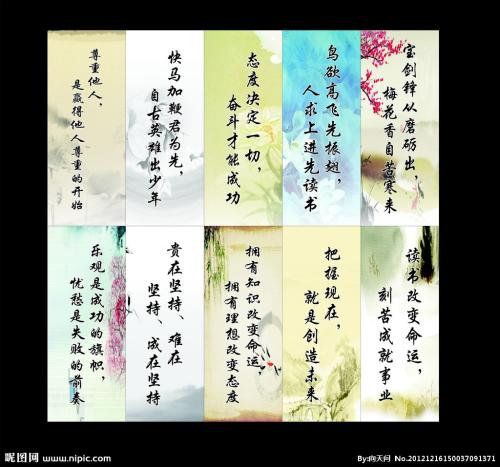 尊重他人，
是赢得他人尊重的开始
快马加鞭君为先，
自古英雄出少年
态度决定一切，
奋斗才能成功
鸟欲高飞先振翅，
人求上进先读书
宝剑锋从磨砺出，
梅花香自苦寒来
乐观是成功的旗帜，
忧愁是失败的前奏
贵在坚持、难在
坚持、成在坚持
拥有知识改变命运，
拥有理想改变态度
把握现在，
就是创造未来
读书改变命运，
刻苦成就事业
昵图网 www.nipic.com
By:向天问 No.20121216150037091371